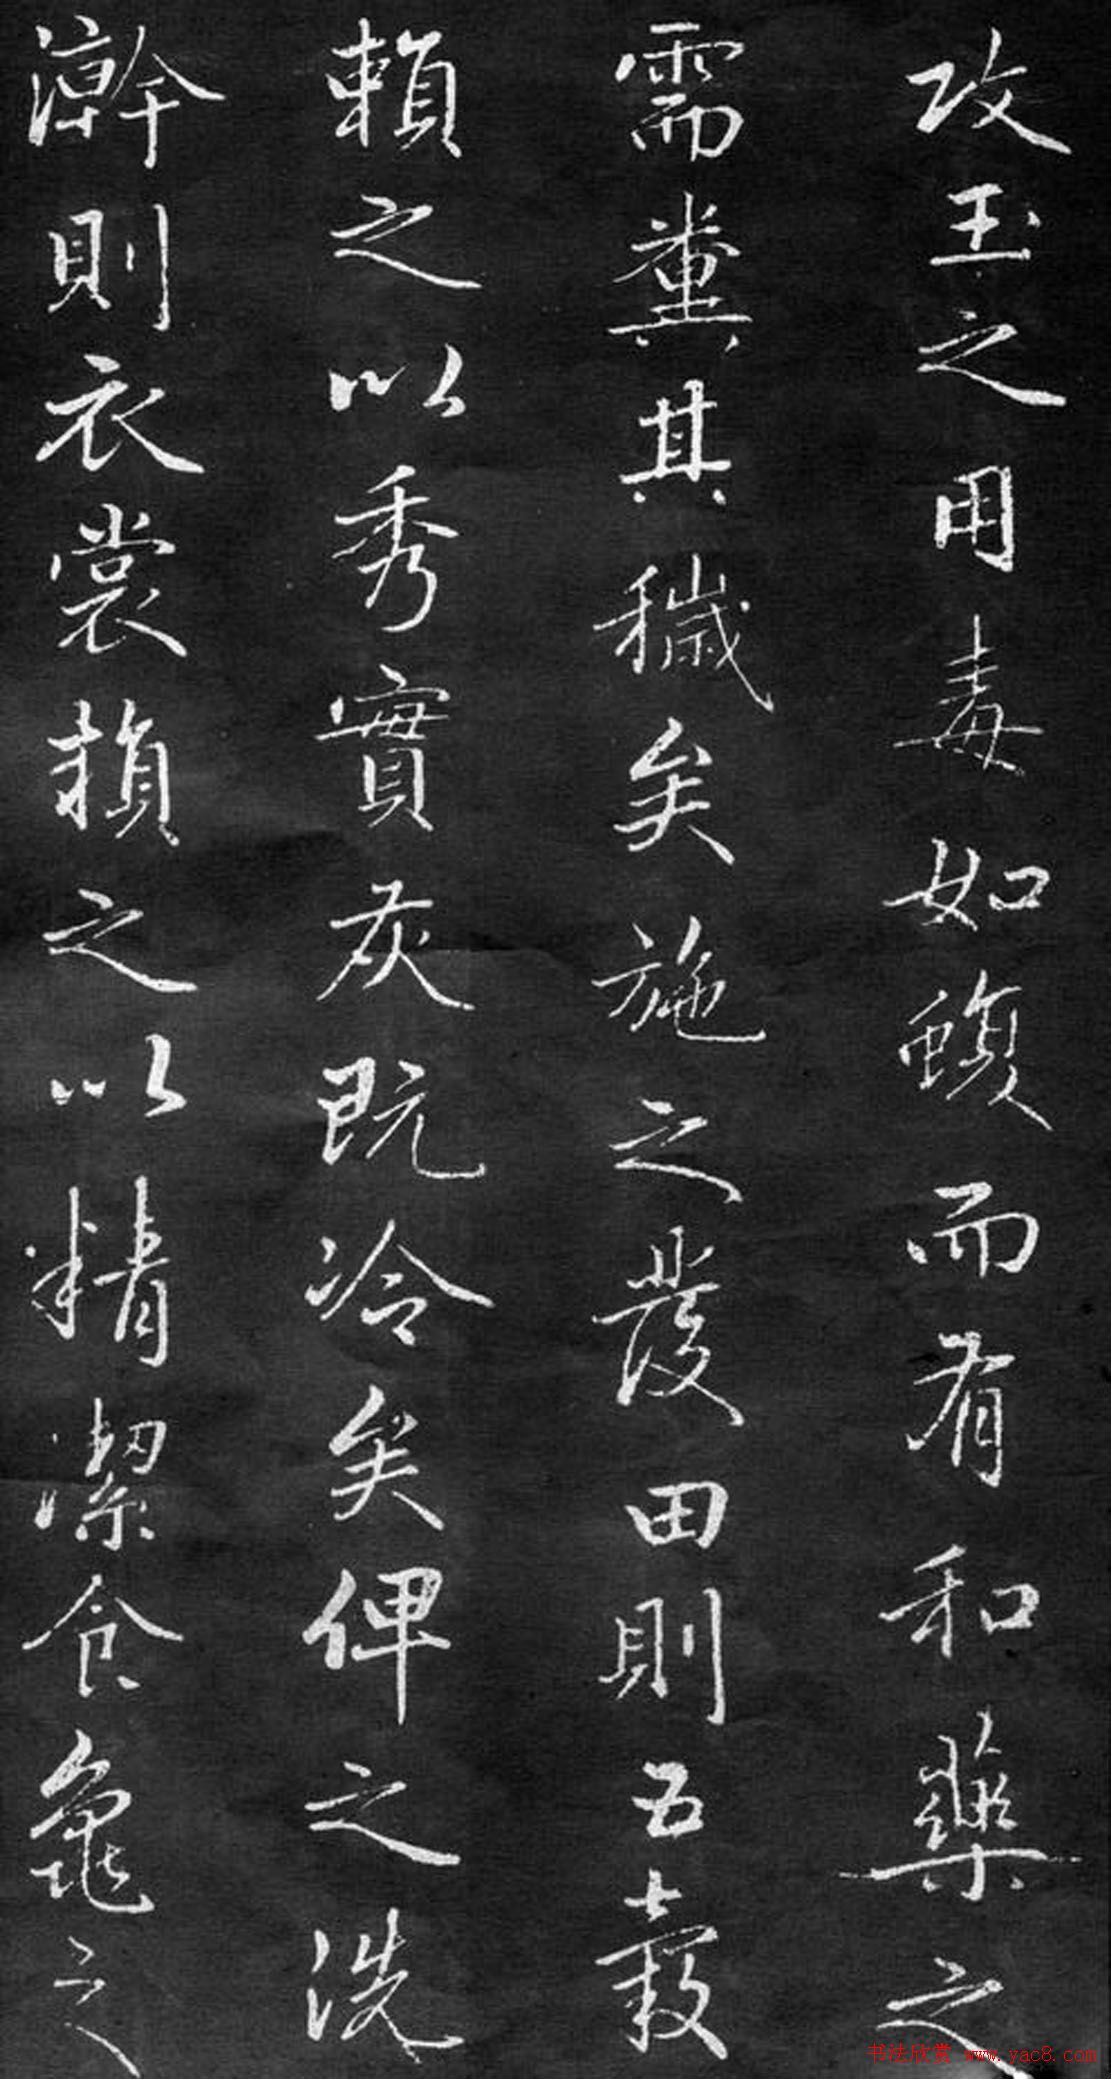 攻玉之用毒如蝮而有和藥之
需糞其穢矣施之發田則五穀
賴之以秀實灰既冷矣俾之洗
澣則衣裳賴之以精潔食龜之
书法欣赏 www.yac8.com